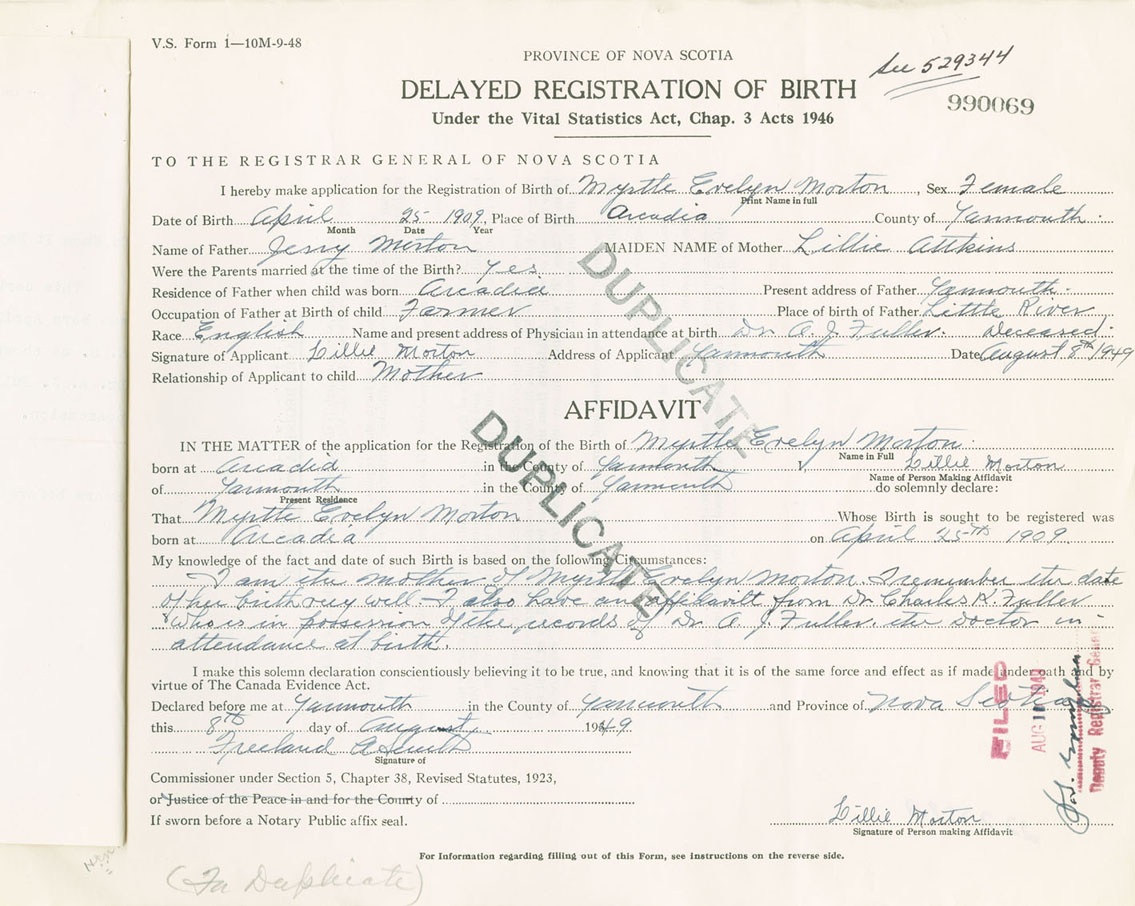 V.S. Form 1—10M-9-48
PROVINCE OF NOVA SCOTIA
See 529344
DELAYED REGISTRATION OF BIRTH
990069
Under the Vital Statistics Act, Chap. 3 Acts 1946
TO THE REGISTRAR GENERAL OF NOVA SCOTIA
I hereby make application for the Registration of Birth of Myrtle Evelyn Morton, Sex Female
Print Name in full
Date of Birth April 25 1909, Place of Birth Arcadia County of Yarmouth.
Month Date Year
Name of Father Jerry Morton MAIDEN NAME of Mother Lillie Attkins
Were the Parents married at the time of the Birth? Yes
Residence of Father when child was born Arcadia Present address of Father Yarmouth.
Occupation of Father at Birth of child Farmer Place of birth of Father Little River
Race English Name and present address of Physician in attendance at birth Dr A. J. Fuller. Deceased.
Signature of Applicant Lillie Morton Address of Applicant Yarmouth Date August 8th 1949
Relationship of Applicant to child Mother
DUPLICATE
AFFIDAVIT
IN THE MATTER of the application for the Registration of the Birth of Myrtle Evelyn Morton.
Name in Full
born at Arcadia in the County of Yarmouth Lillie Morton
Name of Person Making Affidavit
of Yarmouth in the County of Yarmouth do solemnly declare:
Present Residence
DUPLICATE
That Myrtle Evelyn Morton Whose Birth is sought to be registered was
born at Arcadia on April 25th 1909.
My knowledge of the fact and date of such Birth is based on the following Circumstances:
I am the mother of Myrtle Evelyn Morton. I remember the date
of her birth very well. I also have an affidavit from Dr Charles K. Fuller
who is in possession of the records of Dr. A. J. Fuller. the Doctor in
attendance at birth.
I make this solemn declaration conscientiously believing it to be true, and knowing that it is of the same force and effect as if made under oath and by
virtue of The Canada Evidence Act.
Declared before me at Yarmouth in the County of Yarmouth and Province of Nova Scotia
this 8th day of August 1949
Freeland A Smith
Signature of
Commissioner under Section 5, Chapter 38, Revised Statutes, 1923,
or Justice of the Peace in and for the County of
If sworn before a Notary Public affix seal.
Lillie Morton
Signature of Person making Affidavit
FILED
AUG 1949
Deputy Registrar General
For Information regarding filling out of this Form, see instructions on the reverse side.
(In Duplicate)